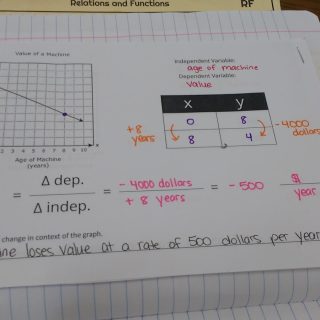 Relations and Functions
RF
Value of a Machine
Independent Variable:
age of machine
Dependent Variable:
value
x y
0 8
8 4
+8 years
-4000 dollars
2 3 4 5 6 7 8 9 10 x
Age of Machine
(years)
= Δ dep. / Δ indep. = -4000 dollars / +8 years = -500 $ / year
change in context of the graph.
loses value at a rate of 500 dollars per year